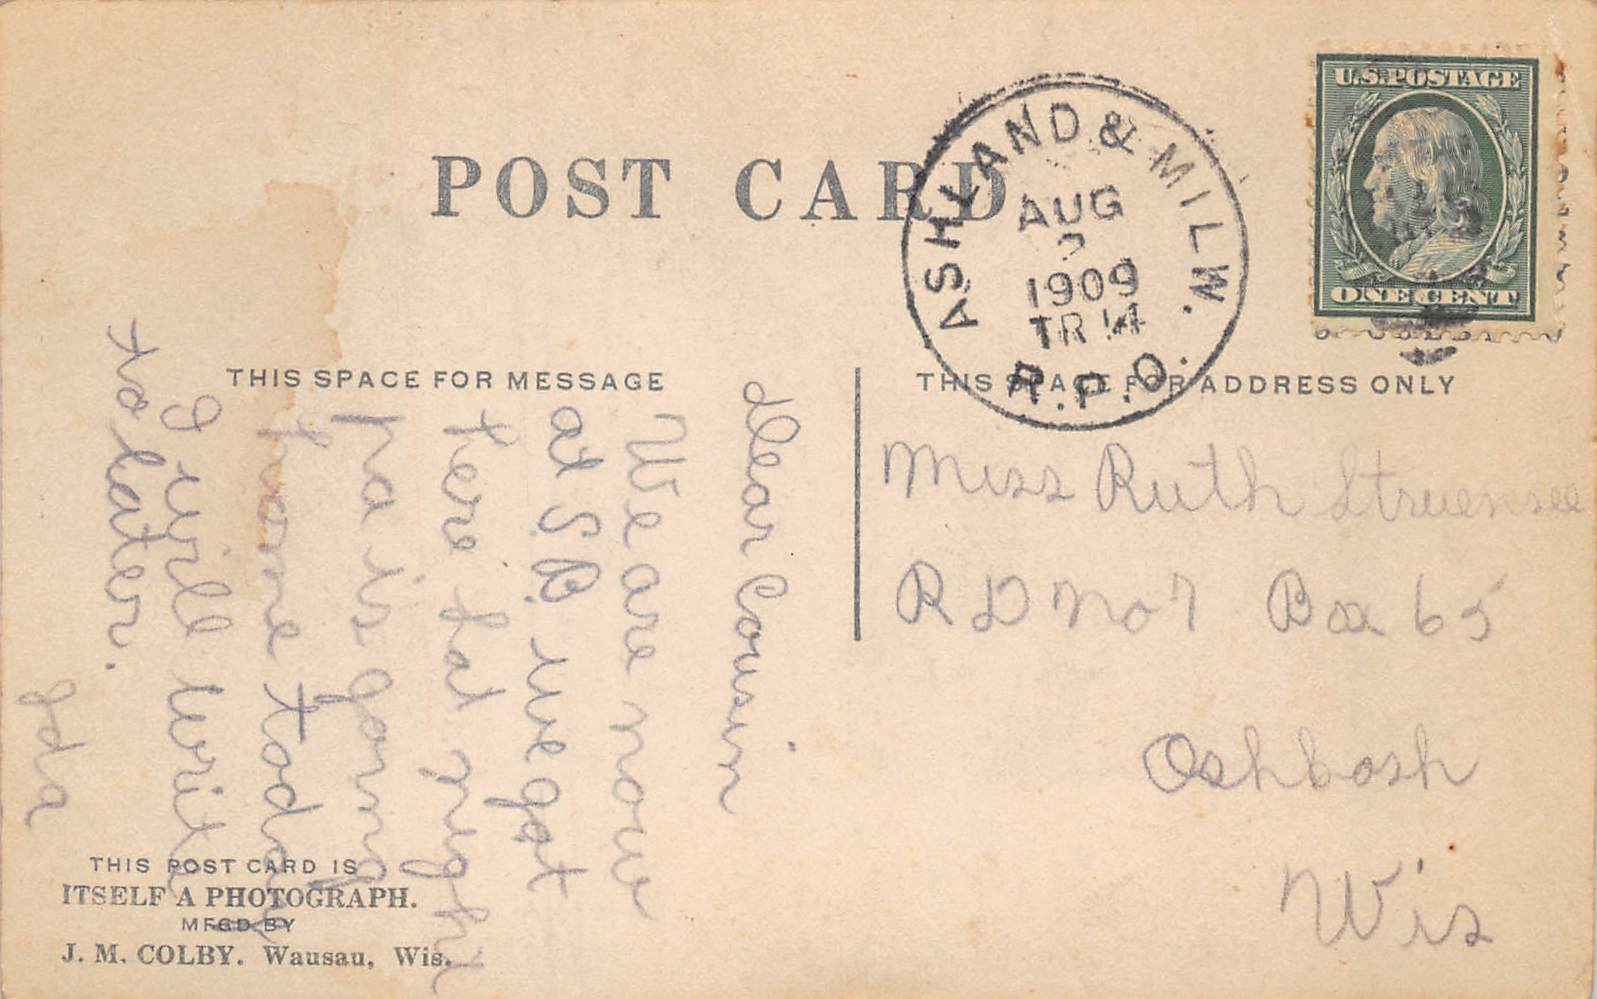 POST CARD
ASHLAND & MILW.
AUG
2
1909
TR 14
R.P.O.
U.S. POSTAGE
ONE CENT
THIS SPACE FOR MESSAGE
THIS SPACE FOR ADDRESS ONLY
Dear Cousin
We are now
at S.B. we got
here Sat night
pa is going
home today
I will write
to later.
Ida
Miss Ruth Struensee
R D No 7 Box 65
Oshkosh
Wis
THIS POST CARD IS
ITSELF A PHOTOGRAPH.
MFGD BY
J. M. COLBY. Wausau, Wis.